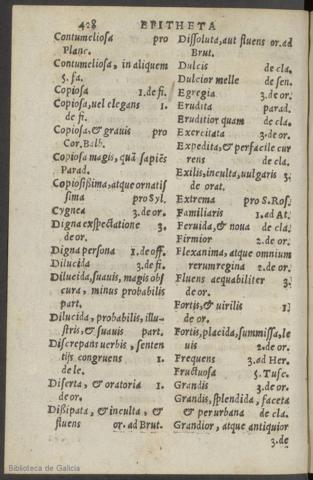 428 EPITHETA
Contumeliosa pro
Planc.
Contumeliosa, in aliquem
5. fa.
Copiosa 1. de fi.
Copiosa, uel elegans 1.
de fi.
Copiosa, & grauis pro
Cor. Balb.
Copiosa magis, quã sapiẽs
Parad.
Copiosißima, atque ornatis
sima pro Syl.
Cygnea 3. de or.
Digna exspectatione 3.
de or.
Digna persona 1. de off.
Dilucida 3. de fi.
Dilucida, suauis, magis obs
cura, minus probabilis
part.
Dilucida, probabilis, illu-
stris, & suauis part.
Discrepans uerbis, senten
tijs congruens 1.
de le.
Diserta, & oratoria 1.
de or.
Dißipata, & inculta, &
fluens or. ad Brut.
Dissoluta, aut fluens or. ad
Brut.
Dulcis de cla.
Dulcior melle de sen.
Egregia 3. de or.
Erudita parad.
Eruditior quam de cla.
Exercitata 3. de or.
Expedita, & perfacile cur
rens de cla.
Exilis, inculta, uulgaris 3.
de orat.
Extrema pro S. Ros.
Familiaris 1. ad At.
Feruida, & noua de cla.
Firmior 2. de or.
Flexanima, atque omnium
rerum regina 2. de or.
Fluens aequabiliter 3.
de or.
Fortis, & uirilis 1.
de or.
Fortis, placida, summissa, le
uis 2. de or.
Frequens 3. ad Her.
Fructuosa 5. Tusc.
Grandis 3. de or.
Grandis, splendida, faceta
& perurbana de cla.
Grandior, atque antiquior
3. de
Biblioteca de Galicia